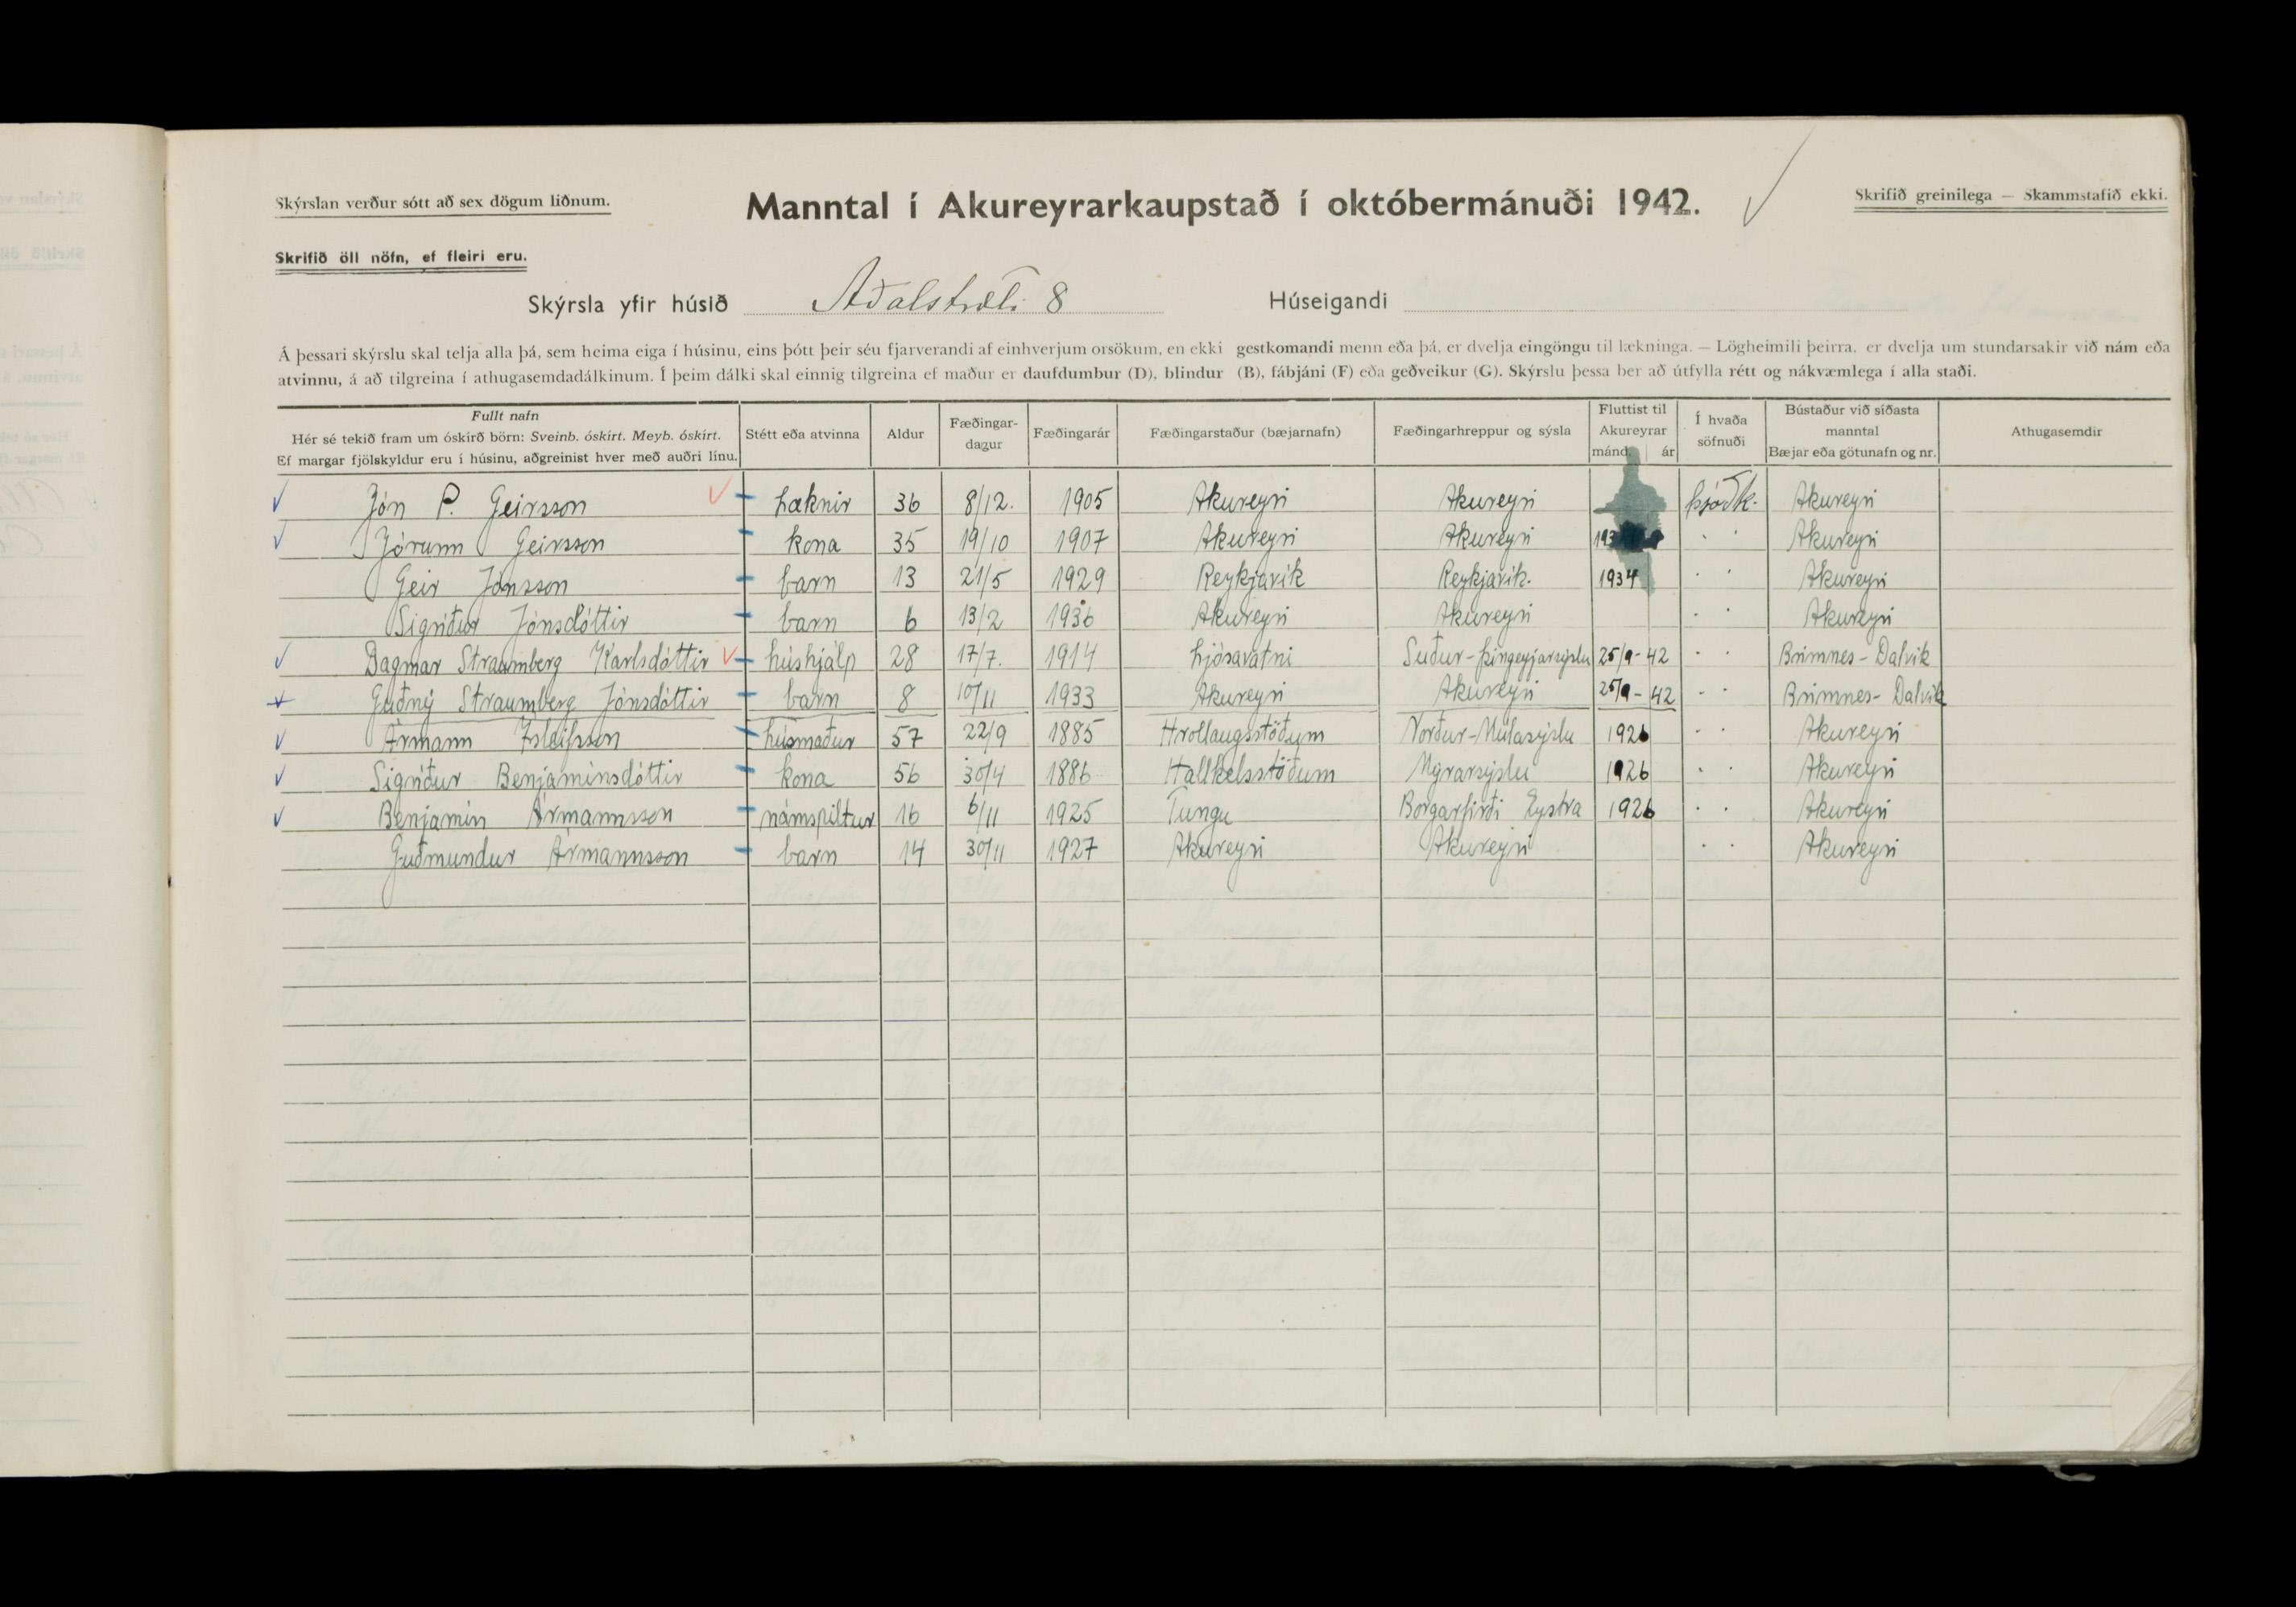 Skýrslan verður sótt að sex dögum liðnum.
Manntal í Akureyrarkaupstað í októbermánuði 1942.
Skrifið greinilega — Skammstafið ekki.
Skrifið öll nöfn, ef fleiri eru.
Skýrsla yfir húsið Aðalstræti 8 Húseigandi
Á þessari skýrslu skal telja alla þá, sem heima eiga í húsinu, eins þótt þeir séu fjarverandi af einhverjum orsökum, en ekki gestkomandi menn eða þá, er dvelja eingöngu til lækninga. — Lögheimili þeirra, er dvelja um stundarsakir við nám eða
atvinnu, á að tilgreina í athugasemdadálkinum. Í þeim dálki skal einnig tilgreina ef maður er daufdumbur (D), blindur (B), fábjáni (F) eða geðveikur (G). Skýrslu þessa ber að útfylla rétt og nákvæmlega í alla staði.
Fullt nafn
Hér sé tekið fram um óskírð börn: Sveinb. óskírt. Meyb. óskírt.
Ef margar fjölskyldur eru í húsinu, aðgreinist hver með auðri línu.
Stétt eða atvinna
Aldur
Fæðingar-
dagur
Fæðingarár
Fæðingarstaður (bæjarnafn)
Fæðingarhreppur og sýsla
Fluttist til
Akureyrar
mánd. ár
Í hvaða
söfnuði
Bústaður við síðasta
manntal
Bæjar eða götunafn og nr.
Athugasemdir
Jón P. Geirsson læknir 36 8/12. 1905 Akureyri Akureyri Þjóðk. Akureyri
Jórunn Geirsson kona 35 19/10 1907 Akureyri Akureyri " Akureyri
Geir Jónsson barn 13 21/5 1929 Reykjavík Reykjavík. 1934 " Akureyri
Sigríður Jónsdóttir barn 6 13/2 1936 Akureyri Akureyri " Akureyri
Dagmar Straumberg Karlsdóttir húshjálp 28 17/7. 1914 Ljósavatni Suður-Þingeyjarsýslu 25/9-42 " Brimnes-Dalvík
Guðný Straumberg Jónsdóttir barn 8 10/11 1933 Akureyri Akureyri 25/9-42 " Brimnes-Dalvík
Ármann Ísleifsson húsmaður 57 22/9 1885 Hrollaugsstöðum Norður-Múlasýslu 1926 " Akureyri
Sigríður Benjamínsdóttir kona 56 30/4 1886 Hallkelsstöðum Mýrarsýslu 1926 " Akureyri
Benjamín Ármannsson námspiltur 16 6/11 1925 Tungu Borgarfirði Eystra 1926 " Akureyri
Guðmundur Ármannsson barn 14 30/11 1927 Akureyri Akureyri " Akureyri